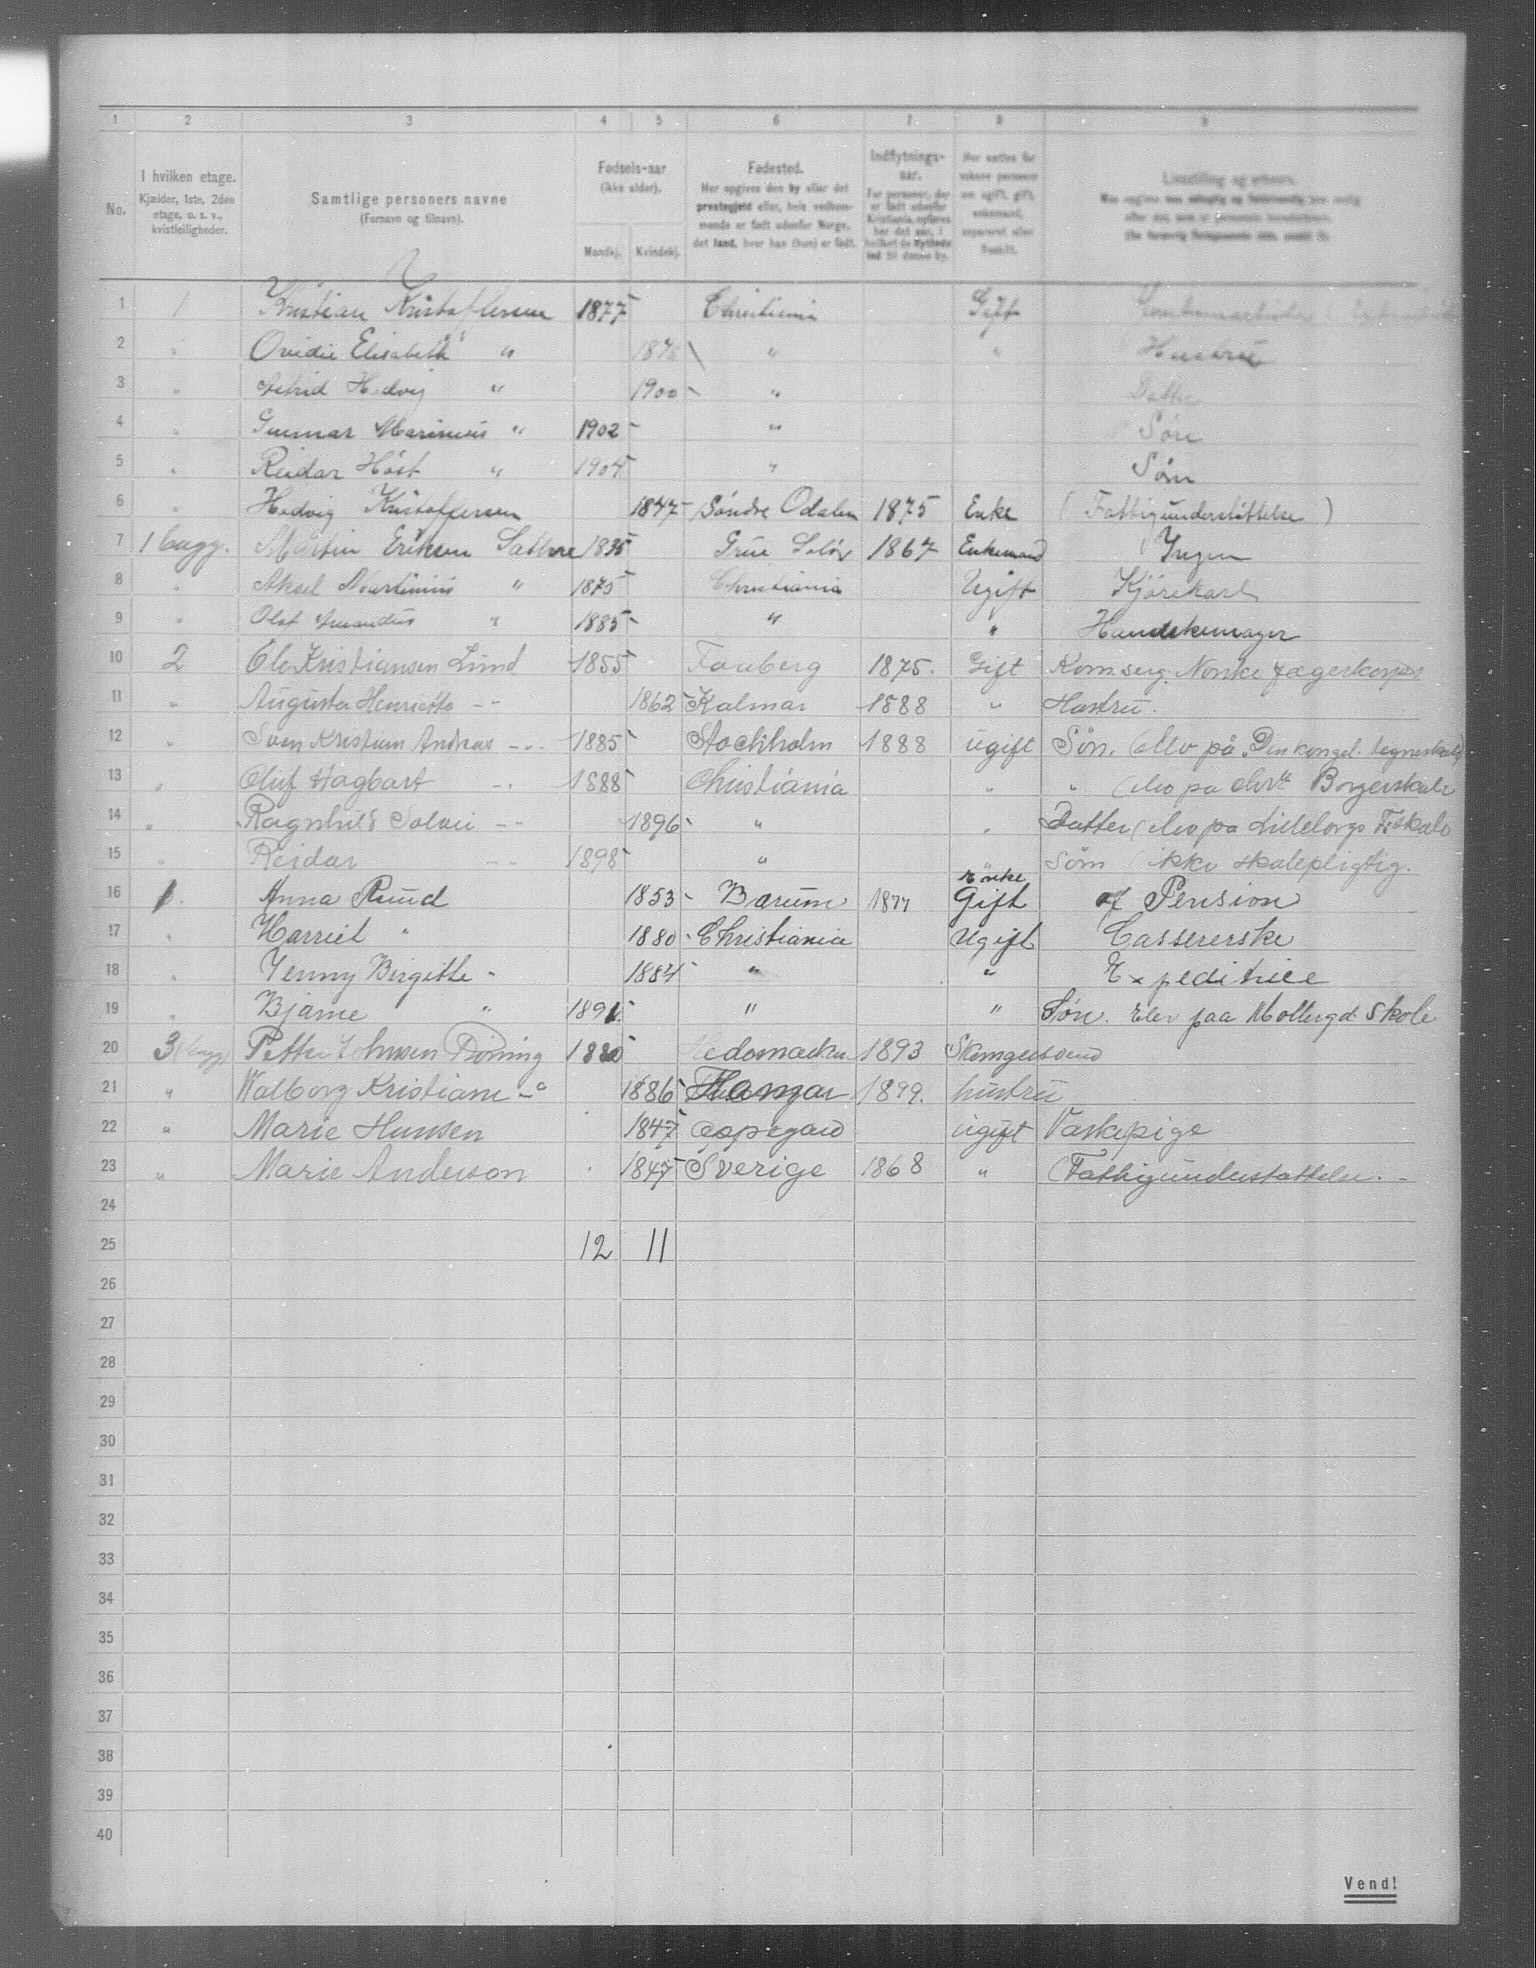 1 2 3 4 5 6 7 8 9
No.
I hvilken etage.
Kjælder, 1ste, 2den
etage, o. s. v.,
kvistleiligheder.
Samtlige personers navne
(Fornavn og tilnavn).
Fødsels-aar
(ikke alder).
Mandkj. Kvindekj.
Fødested.
Her opgives den by eller det
prestegjeld eller, hvis vedkom-
mende er født udenfor Norge,
det land, hvor han (hun) er født.
Indflytnings-
aar.
For personer, der
er født udenfor
Kristiania, opføres
her det aar, i
hvilket de flyttede
ind til denne by.
Her sættes for
voksne personer
om ugift, gift,
enkemand,
separeret eller
fraskilt.
Livsstilling og erhverv.
1 1 Kristian Kristoffersen 1877 Christiania Gift
2 " Ovidie Elisabeth " " " Hustru
3 " Astrid Hedvig " 1900 " Datter
4 " Gunnar Marinius " 1902 " Søn
5 " Reidar Høst " 1904 " Søn
6 " Hedvig Kristoffersen 1847 Søndre Odalen 1875 Enke (Fattigunderstøttelse)
7 1 bagg. Martin Eriksen Sæthre 1835 Grue Solør 1867 Enkemand Ingen
8 " Aksel Martinius " 1875 Christiania Ugift Kjørekarl
9 " Olaf Amandus " 1885 " " Handskemager
10 2 Ole Kristiansen Lund 1855 Faaberg 1875. Gift Kom. serg. Norske Jægerkorps
11 " Augusta Henriette -"- 1862 Kalmar 1888 " Hustru.
12 " Sven Kristian Andreas -"- 1885 Stockholm 1888 ugift Søn. (Elev på Den kongel. tegneskole)
13 " Oluf Hagbart -"- 1888 Christiania " " (Elev på Borgerskole
14 " Ragnhild Solvei -"- 1896 " " Datter (Elev på Lilleborgs Fskole
15 " Reidar -"- 1898 " Søn (ikke skolepligtig.
16 1. Anna Ruud 1853 Bærum 1877 Enke Gift af Pension
17 " Harriet " 1880 Christiania Ugift Cassererske
18 " Jenny Birgitte " 1884 " " Expeditrice
19 " Bjarne " 1891. " " Søn. Elev paa Møllergd Skole
20 3 (bagg) Petter Johnsen Dørning 1880 Hedemarken 1893
21 " Valborg Kristiane -"- 1886 Hamar 1899. hustru
22 " Marie Hansen 1847 ugift Vaskepige
23 " Marie Anderson 1847 Sverige 1868 " (Fattigunderstøttelse.
24
25 12 11
26
27
28
29
30
31
32
33
34
35
36
37
38
39
40
Vend!